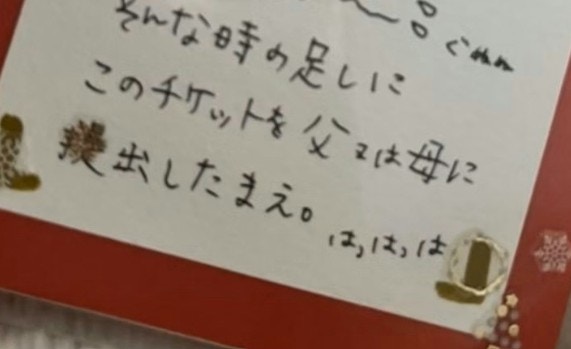 そんな時の足しに
このチケットを父又は母に
提出したまえ。
は,は,は